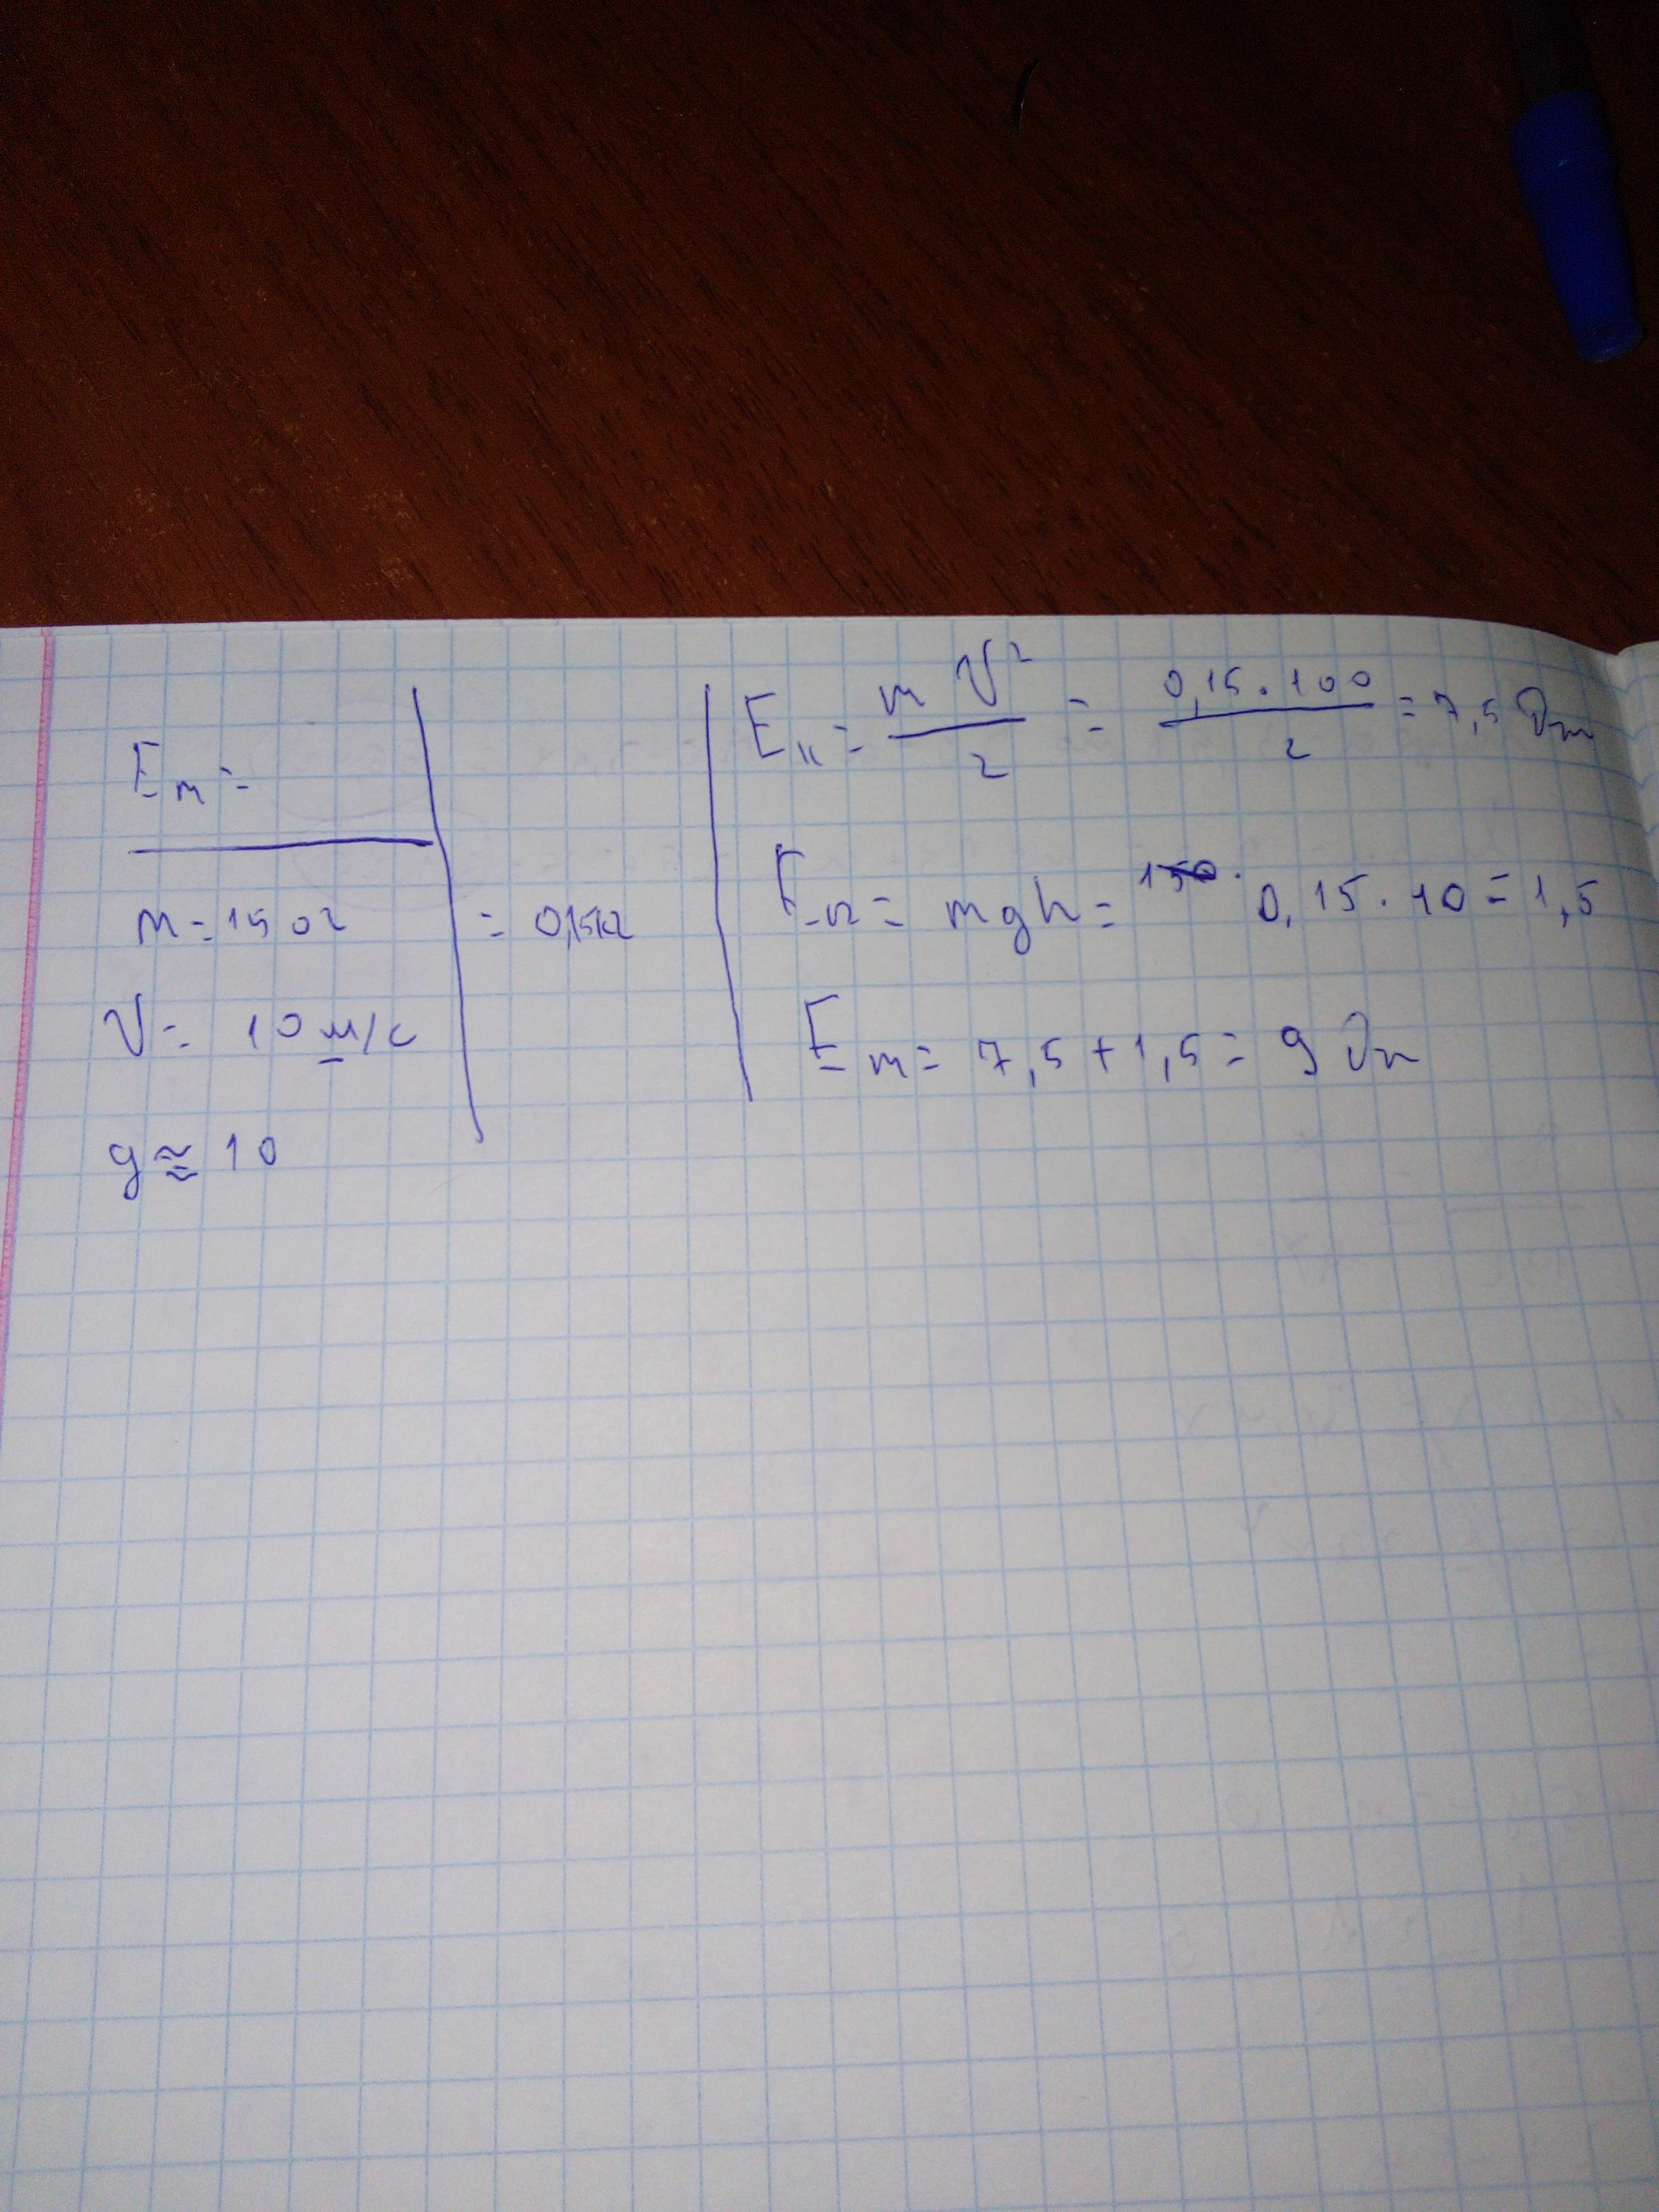 Eₘ =
m = 150г = 0,15кг
V = 10 м/с
g ≈ 10
Eₖ = mV²/2 = 0,15 · 100/2 = 7,5 Дж
Eₙ = mgh = 0,15 · 10 = 1,5
Eₘ = 7,5 + 1,5 = 9 Дж